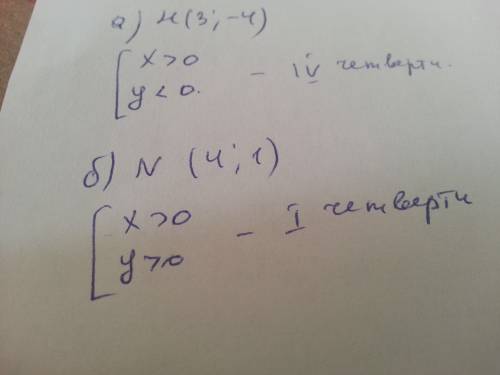 а) H(3; -4)
x > 0
y < 0. - IV четверти.
б) N (4; 1)
x > 0
y > 0 - I четверти